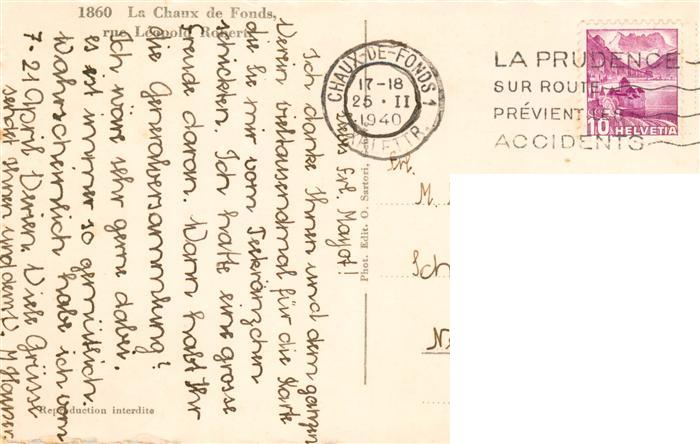 1860 La Chaux de Fonds,
rue Léopold Robert
CHAUX-DE-FONDS 1
17-18
25 · II
1940
LA PRUDENCE
SUR ROUTE
PRÉVIENT LES
ACCIDENTS
10 HELVETIA
Liebes Frl. Mayot!
Ich danke Ihnen und dem ganzen
Verein vieltausendmal für die Karte
die Sie mir vom Teekränzchen
schickten. Ich hatte eine grosse
Freude daran. Wann habt Ihr
die Generalversammlung?
Ich wäre sehr gerne dabei.
es ist immer so gemütlich.
Wahrscheinlich habe ich vom
7-21 April Ferien. Viele Grüsse
sendet Ihnen und dem V. M
Phot. Edit. O. Sartori,
Frl.
M.
Sch
N
Reproduction interdite